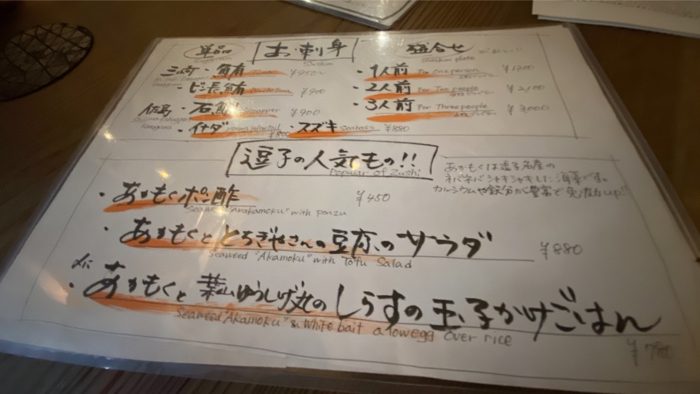 単品 お刺身 盛合せ
三崎・
ビン長鮪 ¥900
佐島・石鯛 ¥900
・イナダ ・スズキ ¥880
・1人前 For one person ¥1200
・2人前 For Two people ¥2,100
・3人前 For Three people ¥3,000
逗子の人気もの!!
Popular of Zushi
あかもくは逗子名産の
ネバネバシャキシャキした海藻
カルシウムや鉄分が豊富で免疫力up!!
・あかもくポン酢 ¥450
Seaweed "Akamoku" with ponzu
・あかもくととちぎやさんの豆腐のサラダ ¥880
Seaweed "Akamoku" with Tofu Salad
・あかもくと葉山ゆうしげ丸のしらすの玉子かけごはん
Seaweed "Akamoku" & White bait
over rice